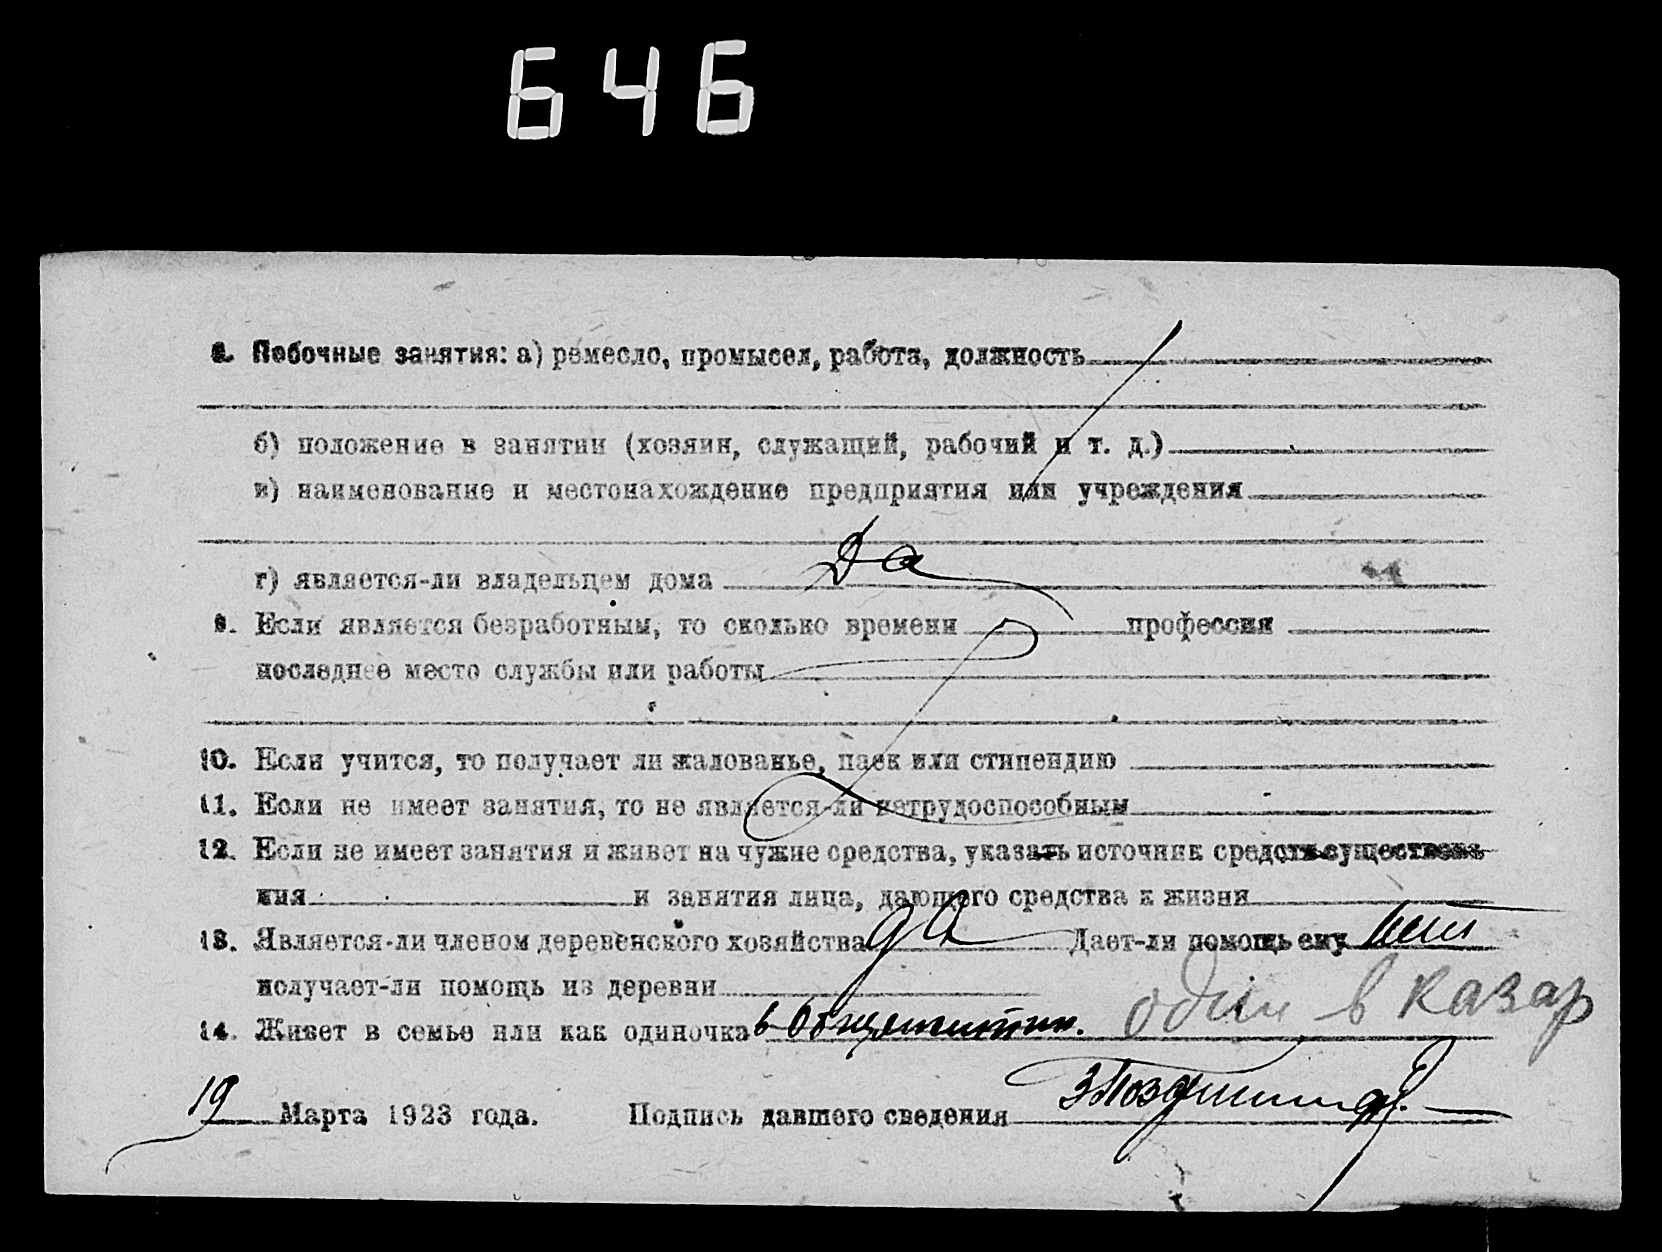 646
8. Побочные занятия: а) ремесло, промысел, работа, должность
б) положение в занятии (хозяин, служащий, рабочий и т. д.)
в) наименование и местонахождение предприятия или учреждения
г) является-ли владельцем дома Да
9. Если является безработным, то сколько времени профессия
последнее место службы или работы
10. Если учится, то получает ли жалованье, паек или стипендию
11. Если не имеет занятия, то не является-ли нетрудоспособным
12. Если не имеет занятия и живет на чужие средства, указать источник средств существова-
ния и занятия лица, дающего средства к жизни
13. Является-ли членом деревенского хозяйства да Дает-ли помощь ему нет
получает-ли помощь из деревни
один в казар
14. Живет в семье или как одиночка в Общежитии.
19 Марта 1923 года. Подпись давшего сведения